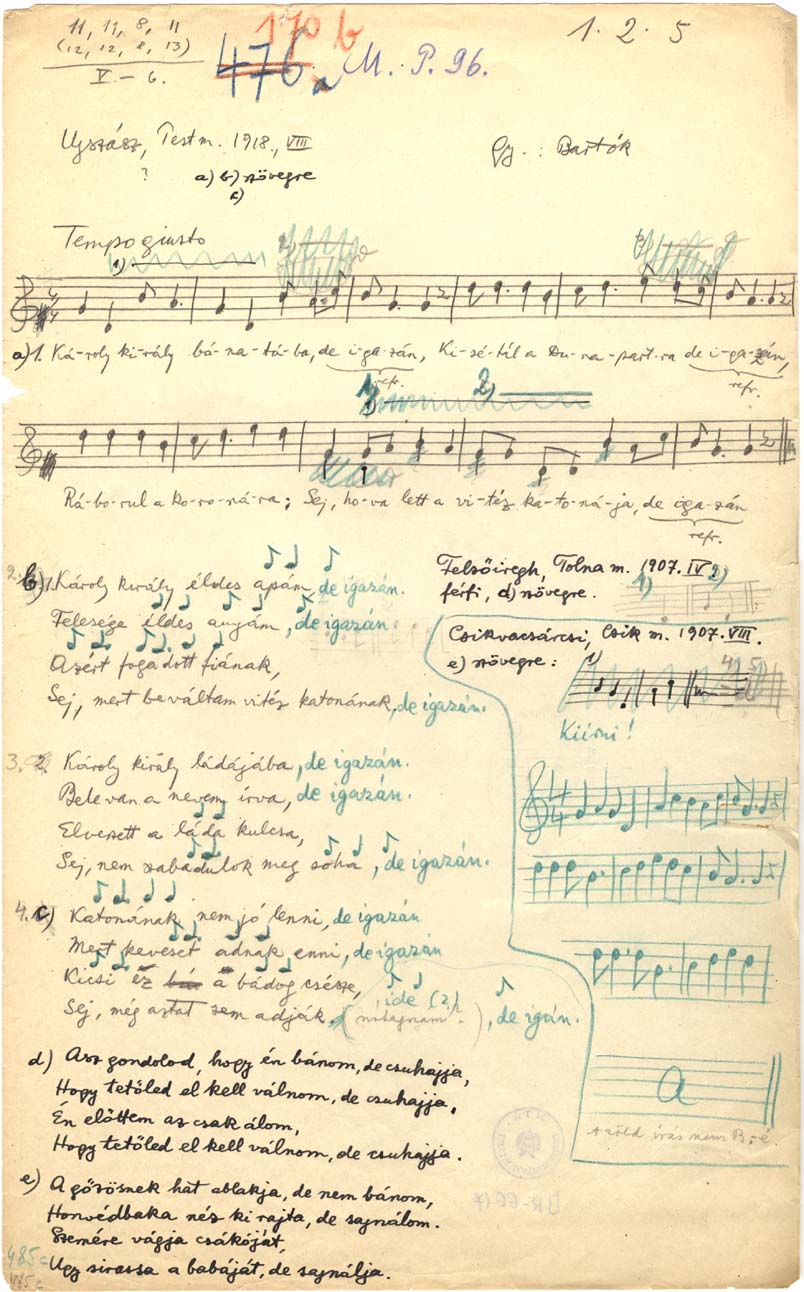 11, 11, 8, 11
(12, 12, 8, 13)
V. – 6.
170 b
476 a
M. P. 96.
1. 2. 5
Ujszász, Pest m. 1918., VIII
?
a) b) szövegre
c)
Gy. : Bartók
Tempo giusto
1) 2) 3)
a) 1. Ká-roly ki-rály bá-na-tá-ba, de i-ga-zán, Ki-sé-tál a Du-na-part-ra de i-ga-zán,
refr. refr.
1) 2)
Rá-bo-rul a ko-ro-ná-ra; Sej, ho-va lett a vi-téz ka-to-ná-ja, de igazán
refr.
2. b) 1. Károly király éldes apám, de igazán.
Felesége éldes anyám, de igazán.
Azért fogadott fiának,
Sej, mert beváltam vitéz katonának, de igazán.
3. 2. Károly király ládájába, de igazán.
Bele van a nevem írva, de igazán.
Elveszett a láda kulcsa,
Sej, nem szabadulok meg soha, de igazán.
4. c) Katonának nem jó lenni, de igazán
Mert keveset adnak enni, de igazán
Kicsi ez a bádog csésze,
Sej, még aztat sem adják ide (z) , de igán.
d) Asz gondolod, hogy én bánom, de csuhajja,
Hogy tetőled el kell válnom, de csuhajja,
Én előttem az csak álom,
Hogy tetőled el kell válnom, de csuhajja.
e) A gőzösnek hat ablakja, de nem bánom,
Honvédbaka néz ki rajta, de sajnálom.
Szemére vágja csákóját,
Ugy sirassa a babáját, de sajnálja.
485 c
Felsőiregh, Tolna m. 1907. IV
férfi, d) szövegre.
1) 2)
Csikvacsárcsi, Csik m. 1907. VIII.
e) szövegre:
1)
Kiírni!
a
A zöld írás nem B.-é.